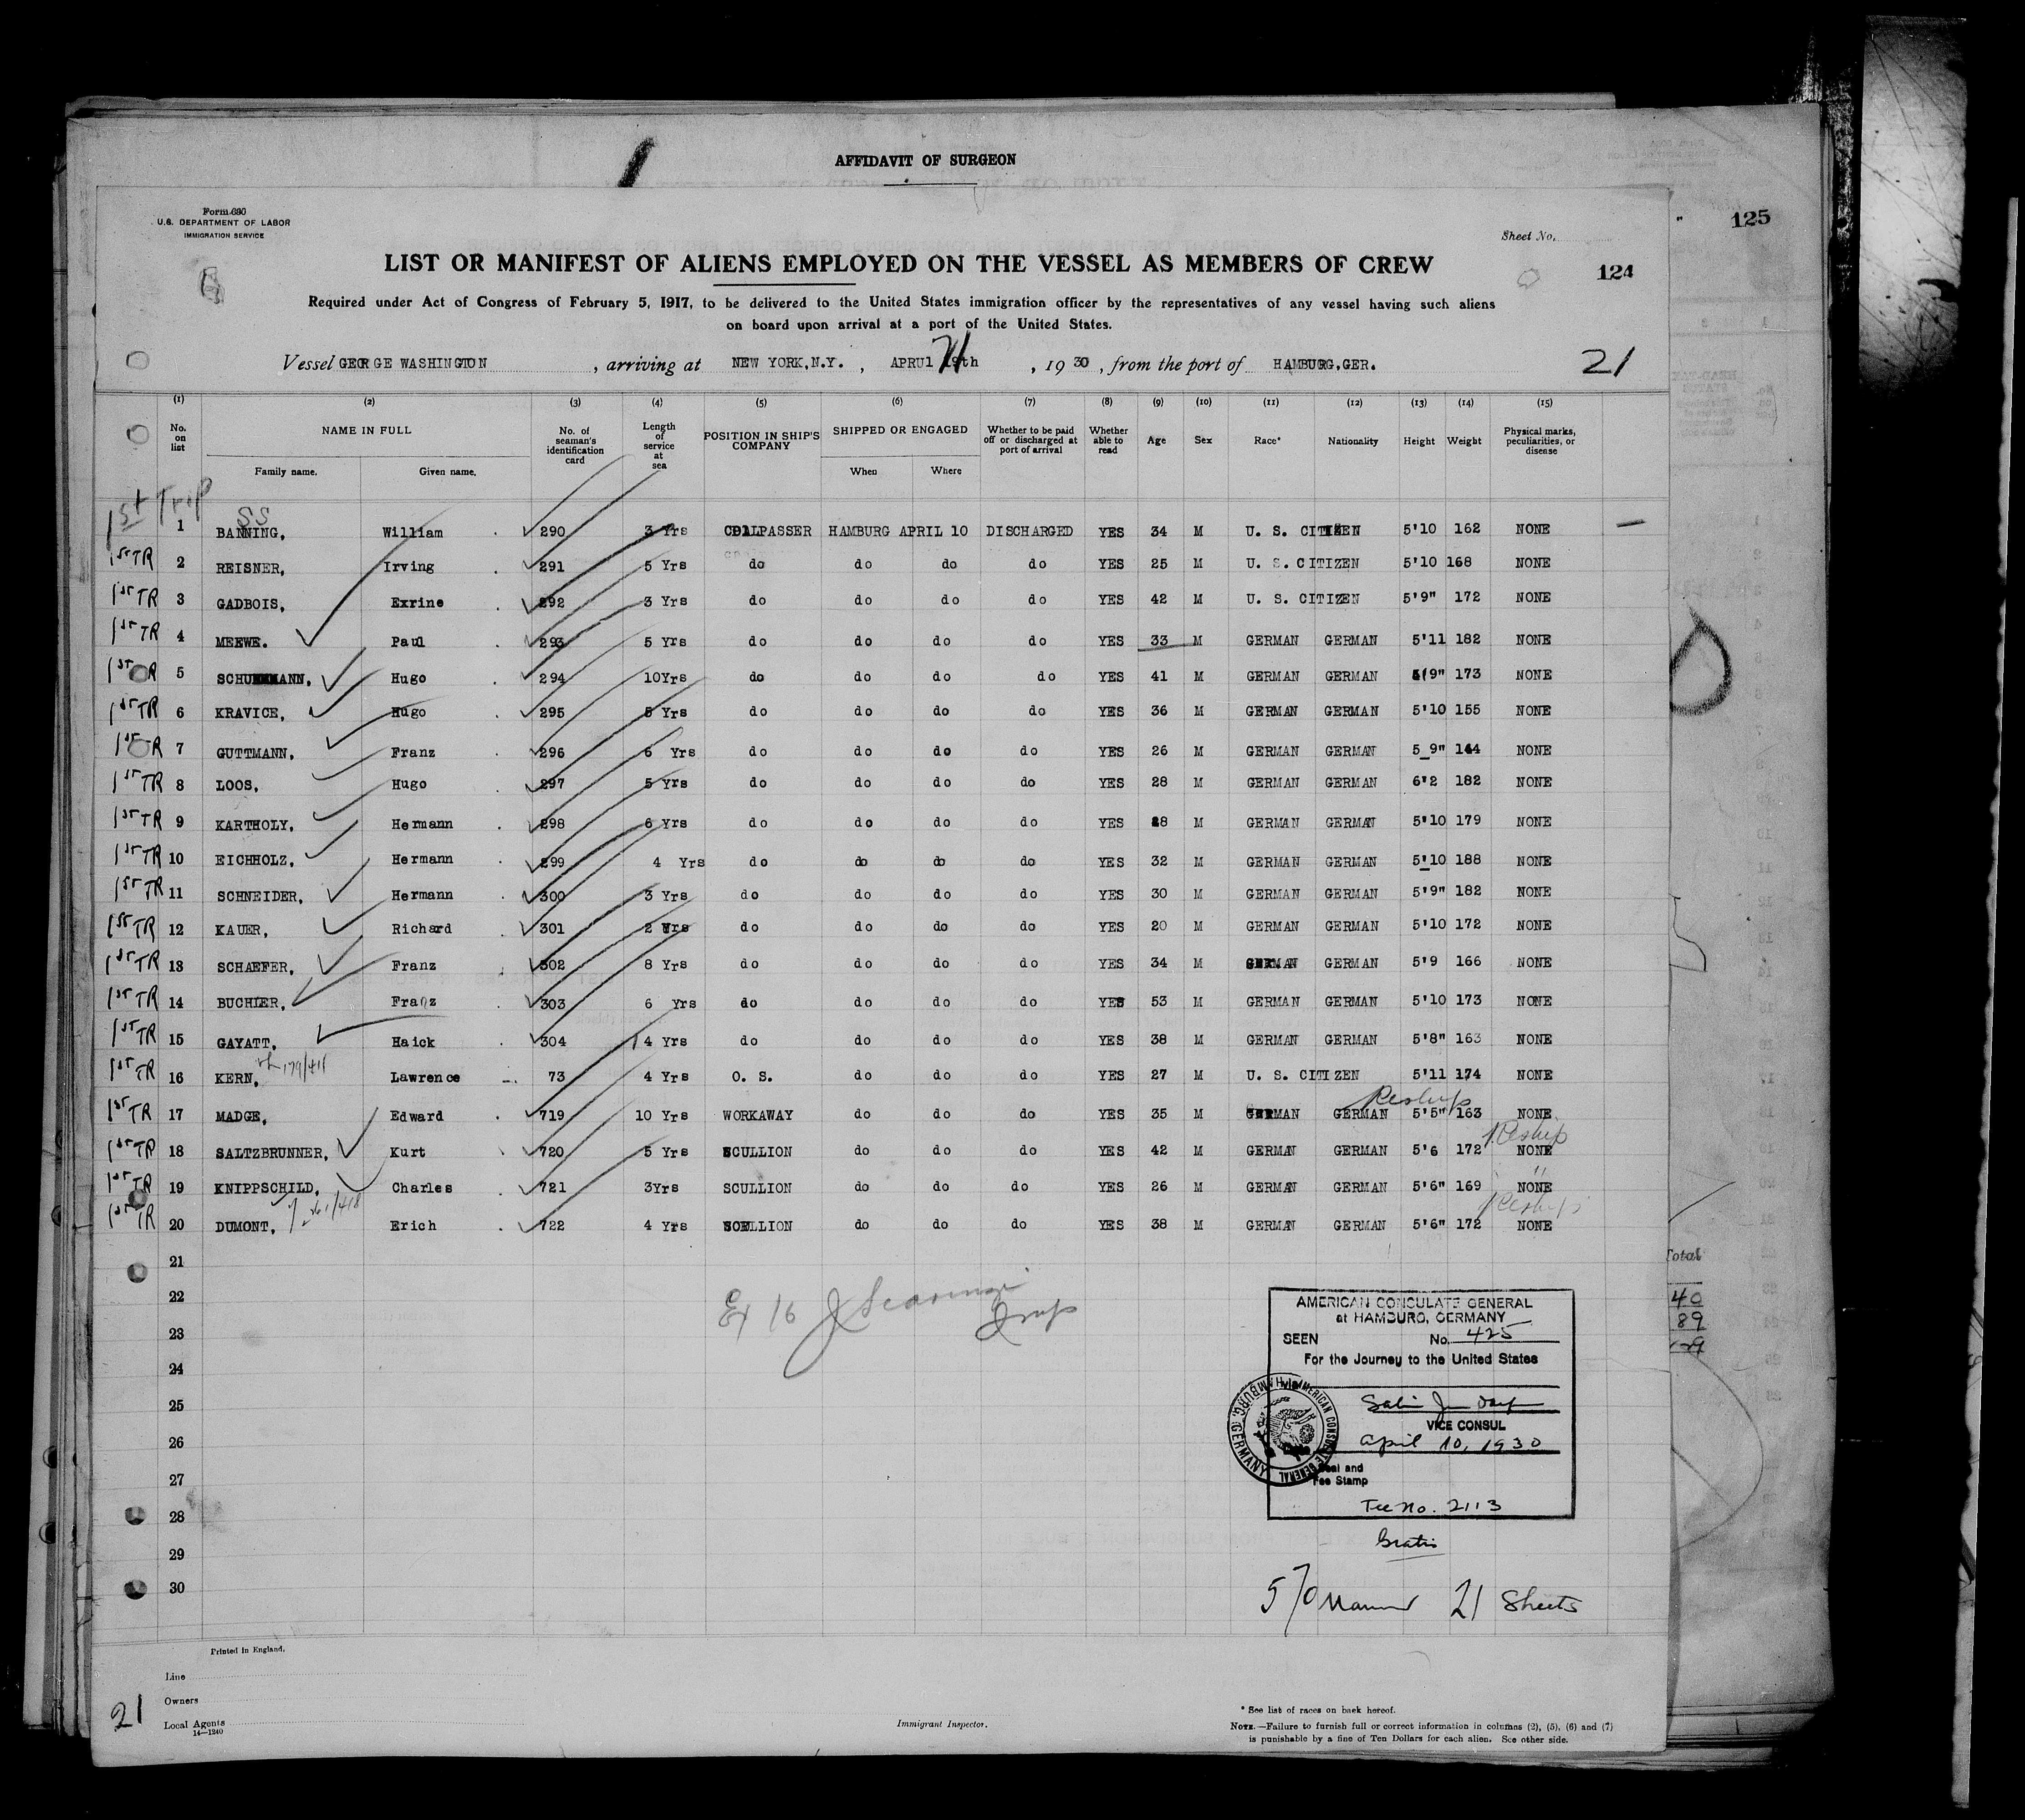 AFFIDAVIT OF SURGEON
Form 680
U.S. DEPARTMENT OF LABOR
IMMIGRATION SERVICE
Sheet No.
125
LIST OR MANIFEST OF ALIENS EMPLOYED ON THE VESSEL AS MEMBERS OF CREW
124
Required under Act of Congress of February 5, 1917, to be delivered to the United States immigration officer by the representatives of any vessel having such aliens
on board upon arrival at a port of the United States.
Vessel GEORGE WASHINGTON, arriving at NEW YORK,N.Y., APRUl 21 19th, 1930, from the port of HAMBURG,GER. 21
(1) (2) (3) (4) (5) (6) (7) (8) (9) (10) (11) (12) (13) (14) (15)
No. on list NAME IN FULL No. of seaman's identification card Length of service at sea POSITION IN SHIP'S COMPANY SHIPPED OR ENGAGED Whether to be paid off or discharged at port of arrival Whether able to read Age Sex Race* Nationality Height Weight Physical marks, peculiarities, or disease
Family name. Given name. When Where
1st Trip 1 BANNING, SS William 290 3 Yrs COALPASSER HAMBURG APRIL 10 DISCHARGED YES 34 M U. S. CITIZEN 5'10 162 NONE
1st TR 2 REISNER, Irving 291 5 Yrs do do do do YES 25 M U. S. CITIZEN 5'10 168 NONE
1st TR 3 GADBOIS, Exrine 292 3 Yrs do do do do YES 42 M U. S. CITIZEN 5'9" 172 NONE
1st TR 4 MEEWE. Paul 293 5 Yrs do do do do YES 33 M GERMAN GERMAN 5'11 182 NONE
1st TR 5 Hugo 294 10Yrs do do do do YES 41 M GERMAN GERMAN 5'9" 173 NONE
1st TR 6 KRAVICE, Hugo 295 5 Yrs do do do do YES 36 M GERMAN GERMAN 5'10 155 NONE
1st TR 7 GUTTMANN, Franz 296 6 Yrs do do do do YES 26 M GERMAN GERMAN 5 9" 144 NONE
1st TR 8 LOOS, Hugo 297 5 Yrs do do do do YES 28 M GERMAN GERMAN 6'2 182 NONE
1st TR 9 KARTHOLY, Hermann 298 6 Yrs do do do do YES 28 M GERMAN GERMAN 5'10 179 NONE
1st TR 10 EICHHOLZ, Hermann 299 4 Yrs do do do do YES 32 M GERMAN GERMAN 5'10 188 NONE
1st TR 11 SCHNEIDER, Hermann 300 3 Yrs do do do do YES 30 M GERMAN GERMAN 5'9" 182 NONE
1st TR 12 KAUER, Richard 301 2 Yrs do do do do YES 20 M GERMAN GERMAN 5'10 172 NONE
1st TR 13 SCHAEFER, Franz 302 8 Yrs do do do do YES 34 M GERMAN GERMAN 5'9 166 NONE
1st TR 14 BUCHIER, Franz 303 6 Yrs do do do do YES 53 M GERMAN GERMAN 5'10 173 NONE
1st TR 15 GAYATT, Haick 304 14 Yrs do do do do YES 38 M GERMAN GERMAN 5'8" 163 NONE
1st TR 16 KERN, 179/411 Lawrence 73 4 Yrs O. S. do do do YES 27 M U. S. CITIZEN 5'11 174 NONE
1st TR 17 MADGE, Edward 719 10 Yrs WORKAWAY do do do YES 35 M GERMAN GERMAN Reship 5'5" 163 NONE
1st TR 18 SALTZBRUNNER, Kurt 720 5 Yrs SCULLION do do do YES 42 M GERMAN GERMAN 5'6 172 Reship NONE
1st TR 19 KNIPPSCHILD, Charles 721 3Yrs SCULLION do do do YES 26 M GERMAN GERMAN 5'6" 169 " NONE
1st TR 20 DUMONT, Erich 722 4 Yrs SCULLION do do do YES 38 M GERMAN GERMAN 5'6" 172 Reship NONE
21
22
23
24
25
26
27
28
29
30
Ex 16 J Scaringi Insp
AMERICAN CONCULATE GENERAL
at HAMBURG, GERMANY
SEEN No. 425
For the Journey to the United States
VICE CONSUL
April 10, 1930
Seal and
Fee Stamp
Fee No. 2113
AMERICAN CONSULATE GENERAL HAMBURG, GERMANY
Gratis
570 21 Sheets
Total
40
89
Printed in England.
Line
Owners
Local Agents
14—1240
21
Immigrant Inspector.
* See list of races on back hereof.
NOTE.—Failure to furnish full or correct information in columns (2), (5), (6) and (7)
is punishable by a fine of Ten Dollars for each alien. See other side.